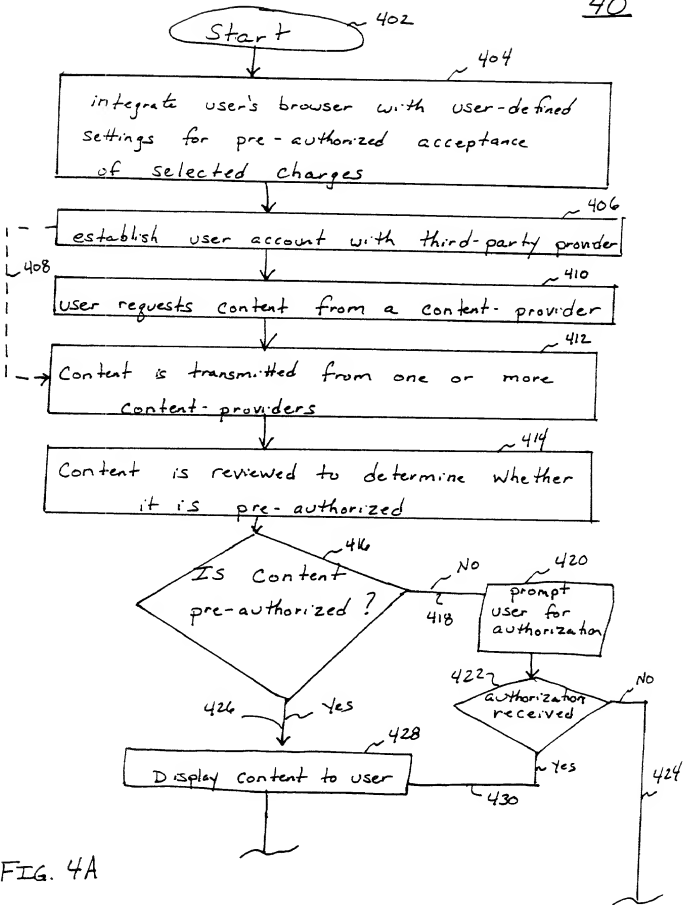 40
402
Start
404
integrate user's browser with user-defined
settings for pre-authorized acceptance
of selected charges
406
establish user account with third-party provider
408
410
user requests content from a content-provider
412
Content is transmitted from one or more
content-providers
414
Content is reviewed to determine whether
it is pre-authorized
416
Is Content
pre-authorized?
No
418
420
prompt
user for
authorization
422
authorization
received
No
424
426
Yes
428
Display content to user
Yes
430
FIG. 4A